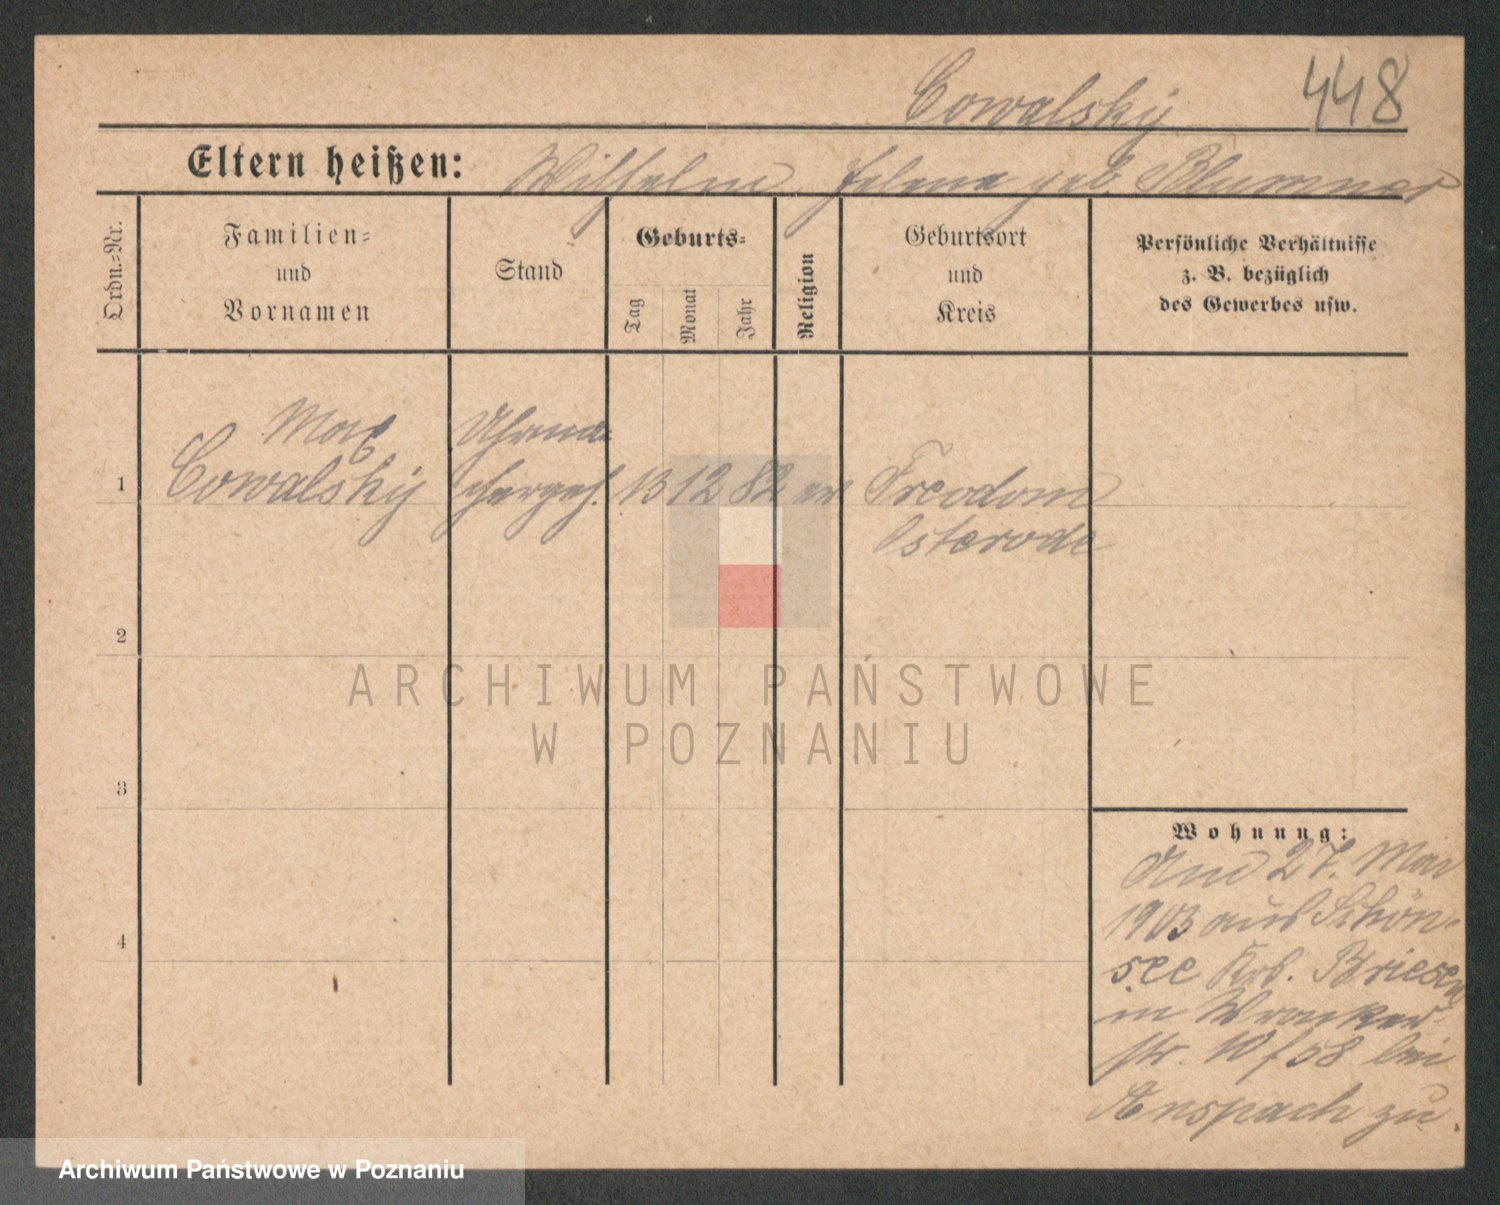 Cowalsky 448
Eltern heißen: Wilhelm Helene geb. Blumner
Ordn.-Nr.
Familien-
und
Vornamen
Stand
Geburts-
Tag
Monat
Jahr
Religion
Geburtsort
und
Kreis
Persönliche Verhältnisse
z. B. bezüglich
des Gewerbes usw.
Max Uhrma-
1 Cowalsky chergeh. 13 12 82 ev
Osterode
2
3
4
Wohnung:
Am 27. Mai
1903 aus Schön-
see Krs. Briesen
in Wronker-
str. 10/58 bei
Anspach zu.
ARCHIWUM PAŃSTWOWE
W POZNANIU
Archiwum Państwowe w Poznaniu